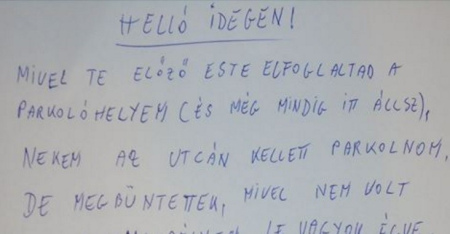 HELLÓ IDEGEN!
MIVEL TE ELŐZŐ ESTE ELFOGLALTAD A
PARKOLÓHELYEM (ÉS MÉG MINDIG ITT ÁLLSZ),
NEKEM AZ UTCÁN KELLETT PARKOLNOM,
DE MEGBÜNTETTEK, MIVEL NEM VOLT
LE VAGYOK ÉGVE